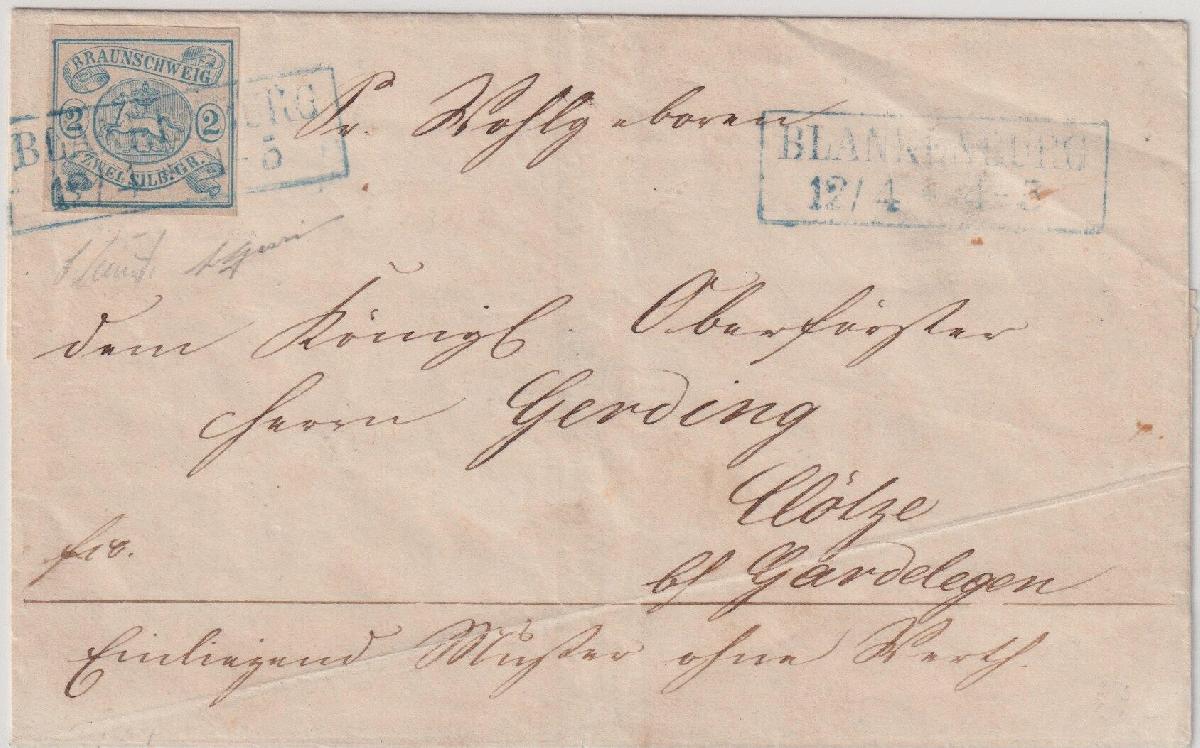 BRAUNSCHWEIG
2 2
ZWEI SILB.GR.
BL URG
12/ - 5
Sr. Wohlgeboren
BLANKENBURG
12/4 4-5
dem Königl Oberförster
Herrn Gerding
Clötze
bei Gardelegen
fco.
Einliegend Muster ohne Werth